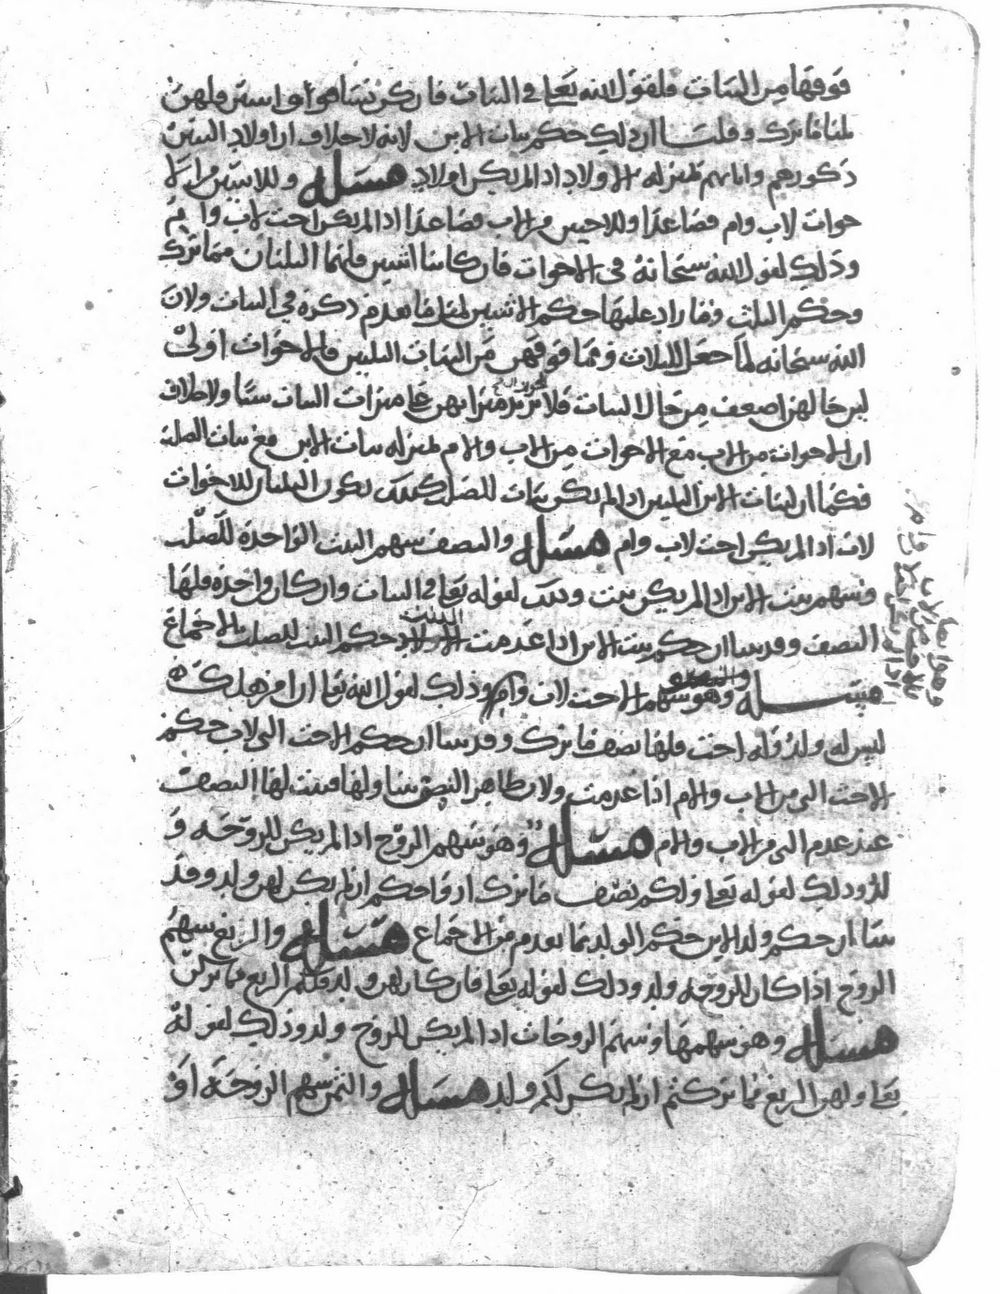 فوقها من البنات فلقول الله تعالى في البنات فان كن نساء فوق اثنتين فلهن
ثلثا ما ترك وقلنا ان ذلك حكم بنات الابن لانه لا خلاف ان اولاد البنين
ذكورهم واناثهم بمنزلة الاولاد اذا لم يكن اولاد مسئلة وللاثنتين من الا
خوات لاب وام فصاعدا وللاختين من الاب فصاعدا اذا لم يكن اخت لاب وام
وذلك لقول الله سبحانه في الاخوات فان كانتا اثنتين فلهما الثلثان مما ترك
وحكم الثلث وما زاد عليها حكم الاثنتين لمثل ما تقدم ذكره في البنات ولان
الله سبحانه لما جعل للثلاث وما فوقهن من البنات الثلثين فالاخوات اولى
لان حالهن اضعف من حال البنات فلا تزيد ميراثهن على ميراث البنات شيئا ولا خلاف
ان الاخوات من الاب مع الاخوات من الاب والام بمنزلة بنات الابن مع بنات الصلب
فكما ان لبنات الابن الثلثين اذا لم يكن بنات للصلب كذلك يكون الثلثان للاخوات
لاب اذا لم يكن اخت لاب وام مسئلة والنصف سهم البنت الواحدة للصلب
وسهم بنت الابن اذا لم يكن بنت وذلك لقوله تعالى في البنات وان كان واحدة فلها
النصف وقد بينا ان حكم بنت الابن اذا عدمت البنت حكم البنت للصلب بالاجماع
مسئلة والنصف وهو سهم الاخت لاب وام وذلك لقول الله تعالى ان امرؤ هلك
ليس له ولد وله اخت فلها نصف ما ترك وقد بينا ان حكم الاخت التي لاب حكم
الاخت التي من الاب والام اذا عدمت ولان ظاهر النص يتناولها فيثبت لها النصف
عند عدم التي من الاب والام مسئلة وهو سهم الزوج اذا لم يكن للزوجة و
لد وذلك لقوله تعالى ولكم نصف ما ترك ازواجكم ان لم يكن لهن ولد وقد
بينا ان حكم ولد الابن حكم الولد بما تقدم من الاجماع مسئلة والربع سهم
الزوج اذا كان للزوجة ولد وذلك لقوله تعالى فان كان لهن ولد فلكم الربع مما تركن
مسئلة وهو سهمها وسهم الزوجات اذا لم يكن للزوج ولد وذلك لقوله
تعالى ولهن الربع مما تركتم ان لم يكن لكم ولد مسئلة والثمن سهم الزوجة او